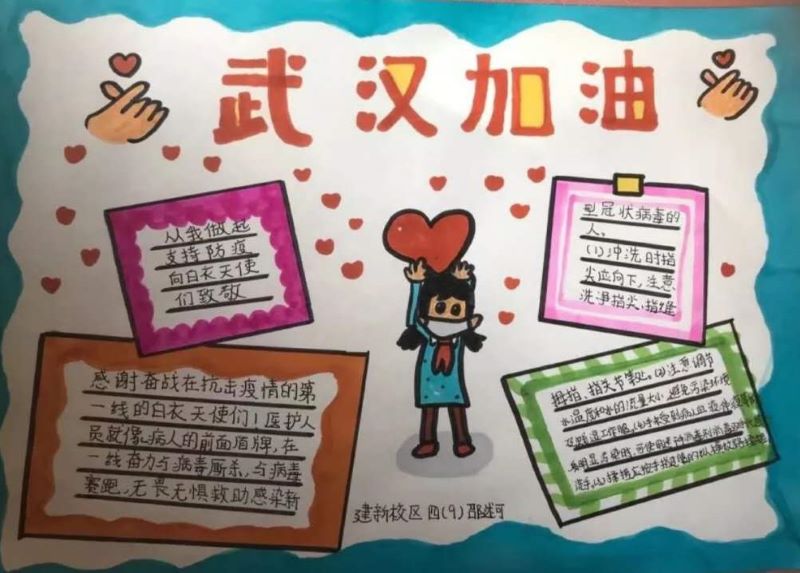 武汉加油
从我做起
支持防疫
向白衣天使
们致敬
型冠状病毒的
人。
(1)冲洗时指
尖应向下,注意
洗净指尖、指缝
感谢奋战在抗击疫情的第
一线的白衣天使们!医护人
员就像病人的前面盾牌,在
一线奋力与病毒厮杀,与病毒
赛跑,无畏无惧救助感染新
拇指、指关节等处。(2)注意调节
水温度和水的流量大小,避免污染环境
建新校区四(9)